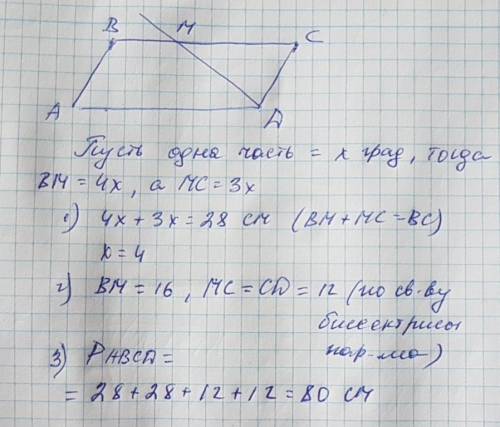 B M C
A D
Пусть одна часть = x град, тогда
BM = 4x, а MC = 3x
1) 4x + 3x = 28 см (BM + MC = BC)
x = 4
2) BM = 16, MC = CD = 12 (по св-ву
биссектрисы
пар-ма)
3) PABCD =
= 28 + 28 + 12 + 12 = 80 см